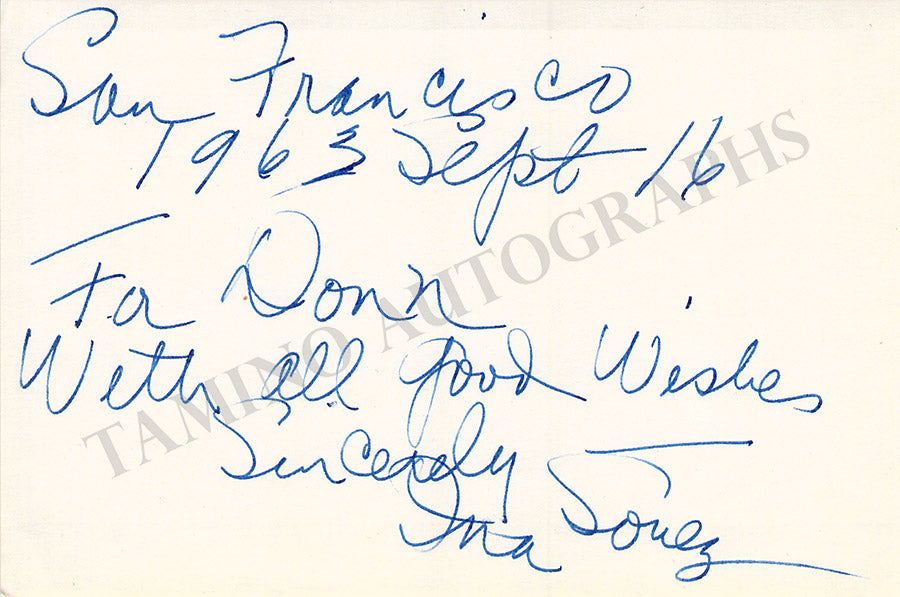 San Francisco
1963 Sept 16
For Donn
With all good Wishes
Sincerely
Ina Souez
TAMINO AUTOGRAPHS